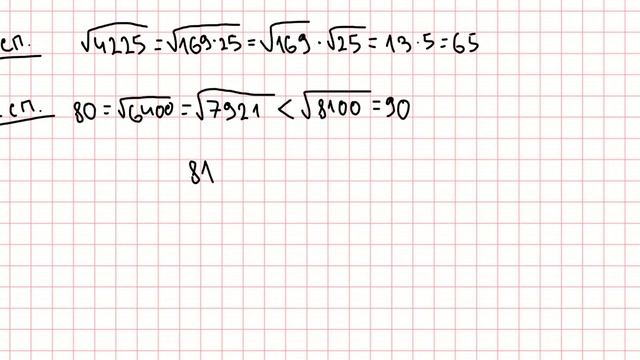 сп. √4225 = √169·25 = √169 · √25 = 13·5 = 65
сп. 80 = √6400 = √7921 < √8100 = 90
81